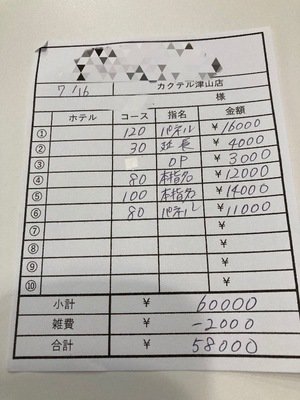 カクテル津山店
7/16 様
ホテル コース 指名 金額
① 120 パネル ¥16000
② 30 延長 ¥4000
③ OP ¥3000
④ 80 本指名 ¥12000
⑤ 100 本指名 ¥14000
⑥ 80 パネル ¥11000
⑦
⑧
⑨
⑩
小計 ¥ 60000
雑費 ¥ -2000
合計 ¥ 58000